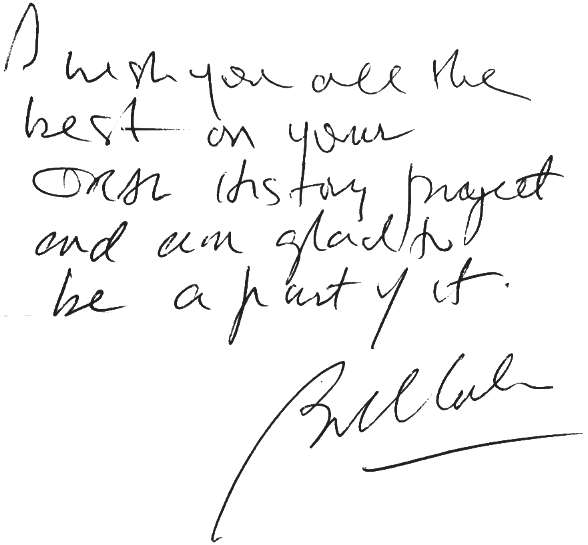 I wish you all the
best on your
ORAL History project
and am glad to
be a part of it.
Bill